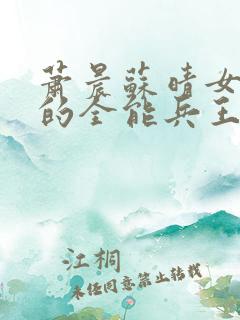 蕭晨蘇晴女
的全能兵王
江桐
未任同意禁止转载